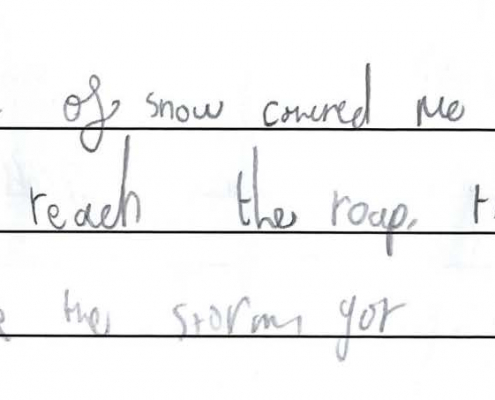 of snow covered me
reach the roap.
the storm got